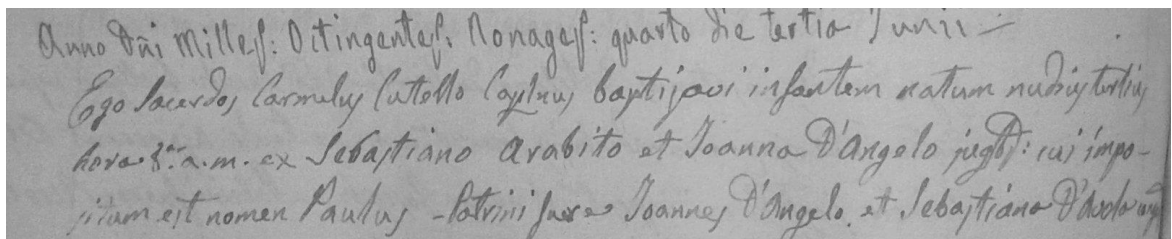 Anno Dñi Milles: Octingentes: Nonages: quarto die tertia Junii —
Ego Sacerdos Carmelus Cutello Caplnus baptizavi infantem natum nudius tertius
hora 8.ª a.m. ex Sebastiano Arabito et Joanna D'Angelo jugbs: cui impo-
situm est nomen Paulus - Patrini fuere Joannes D'Angelo et Sebastiana D'Avola